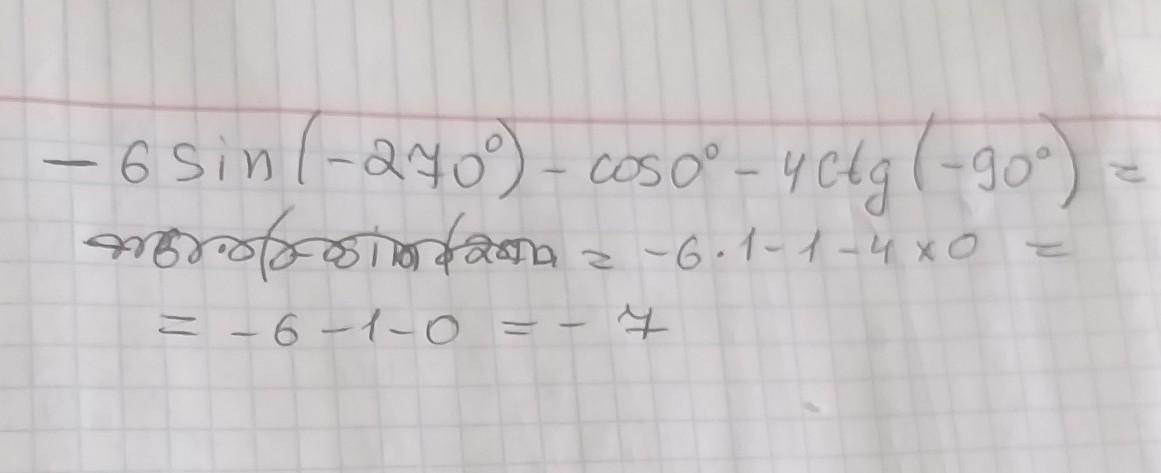 - 6 sin (-270°) - cos0° - 4ctg (-90°) =
= -6·1-1-4×0 =
= -6-1-0 = - 7